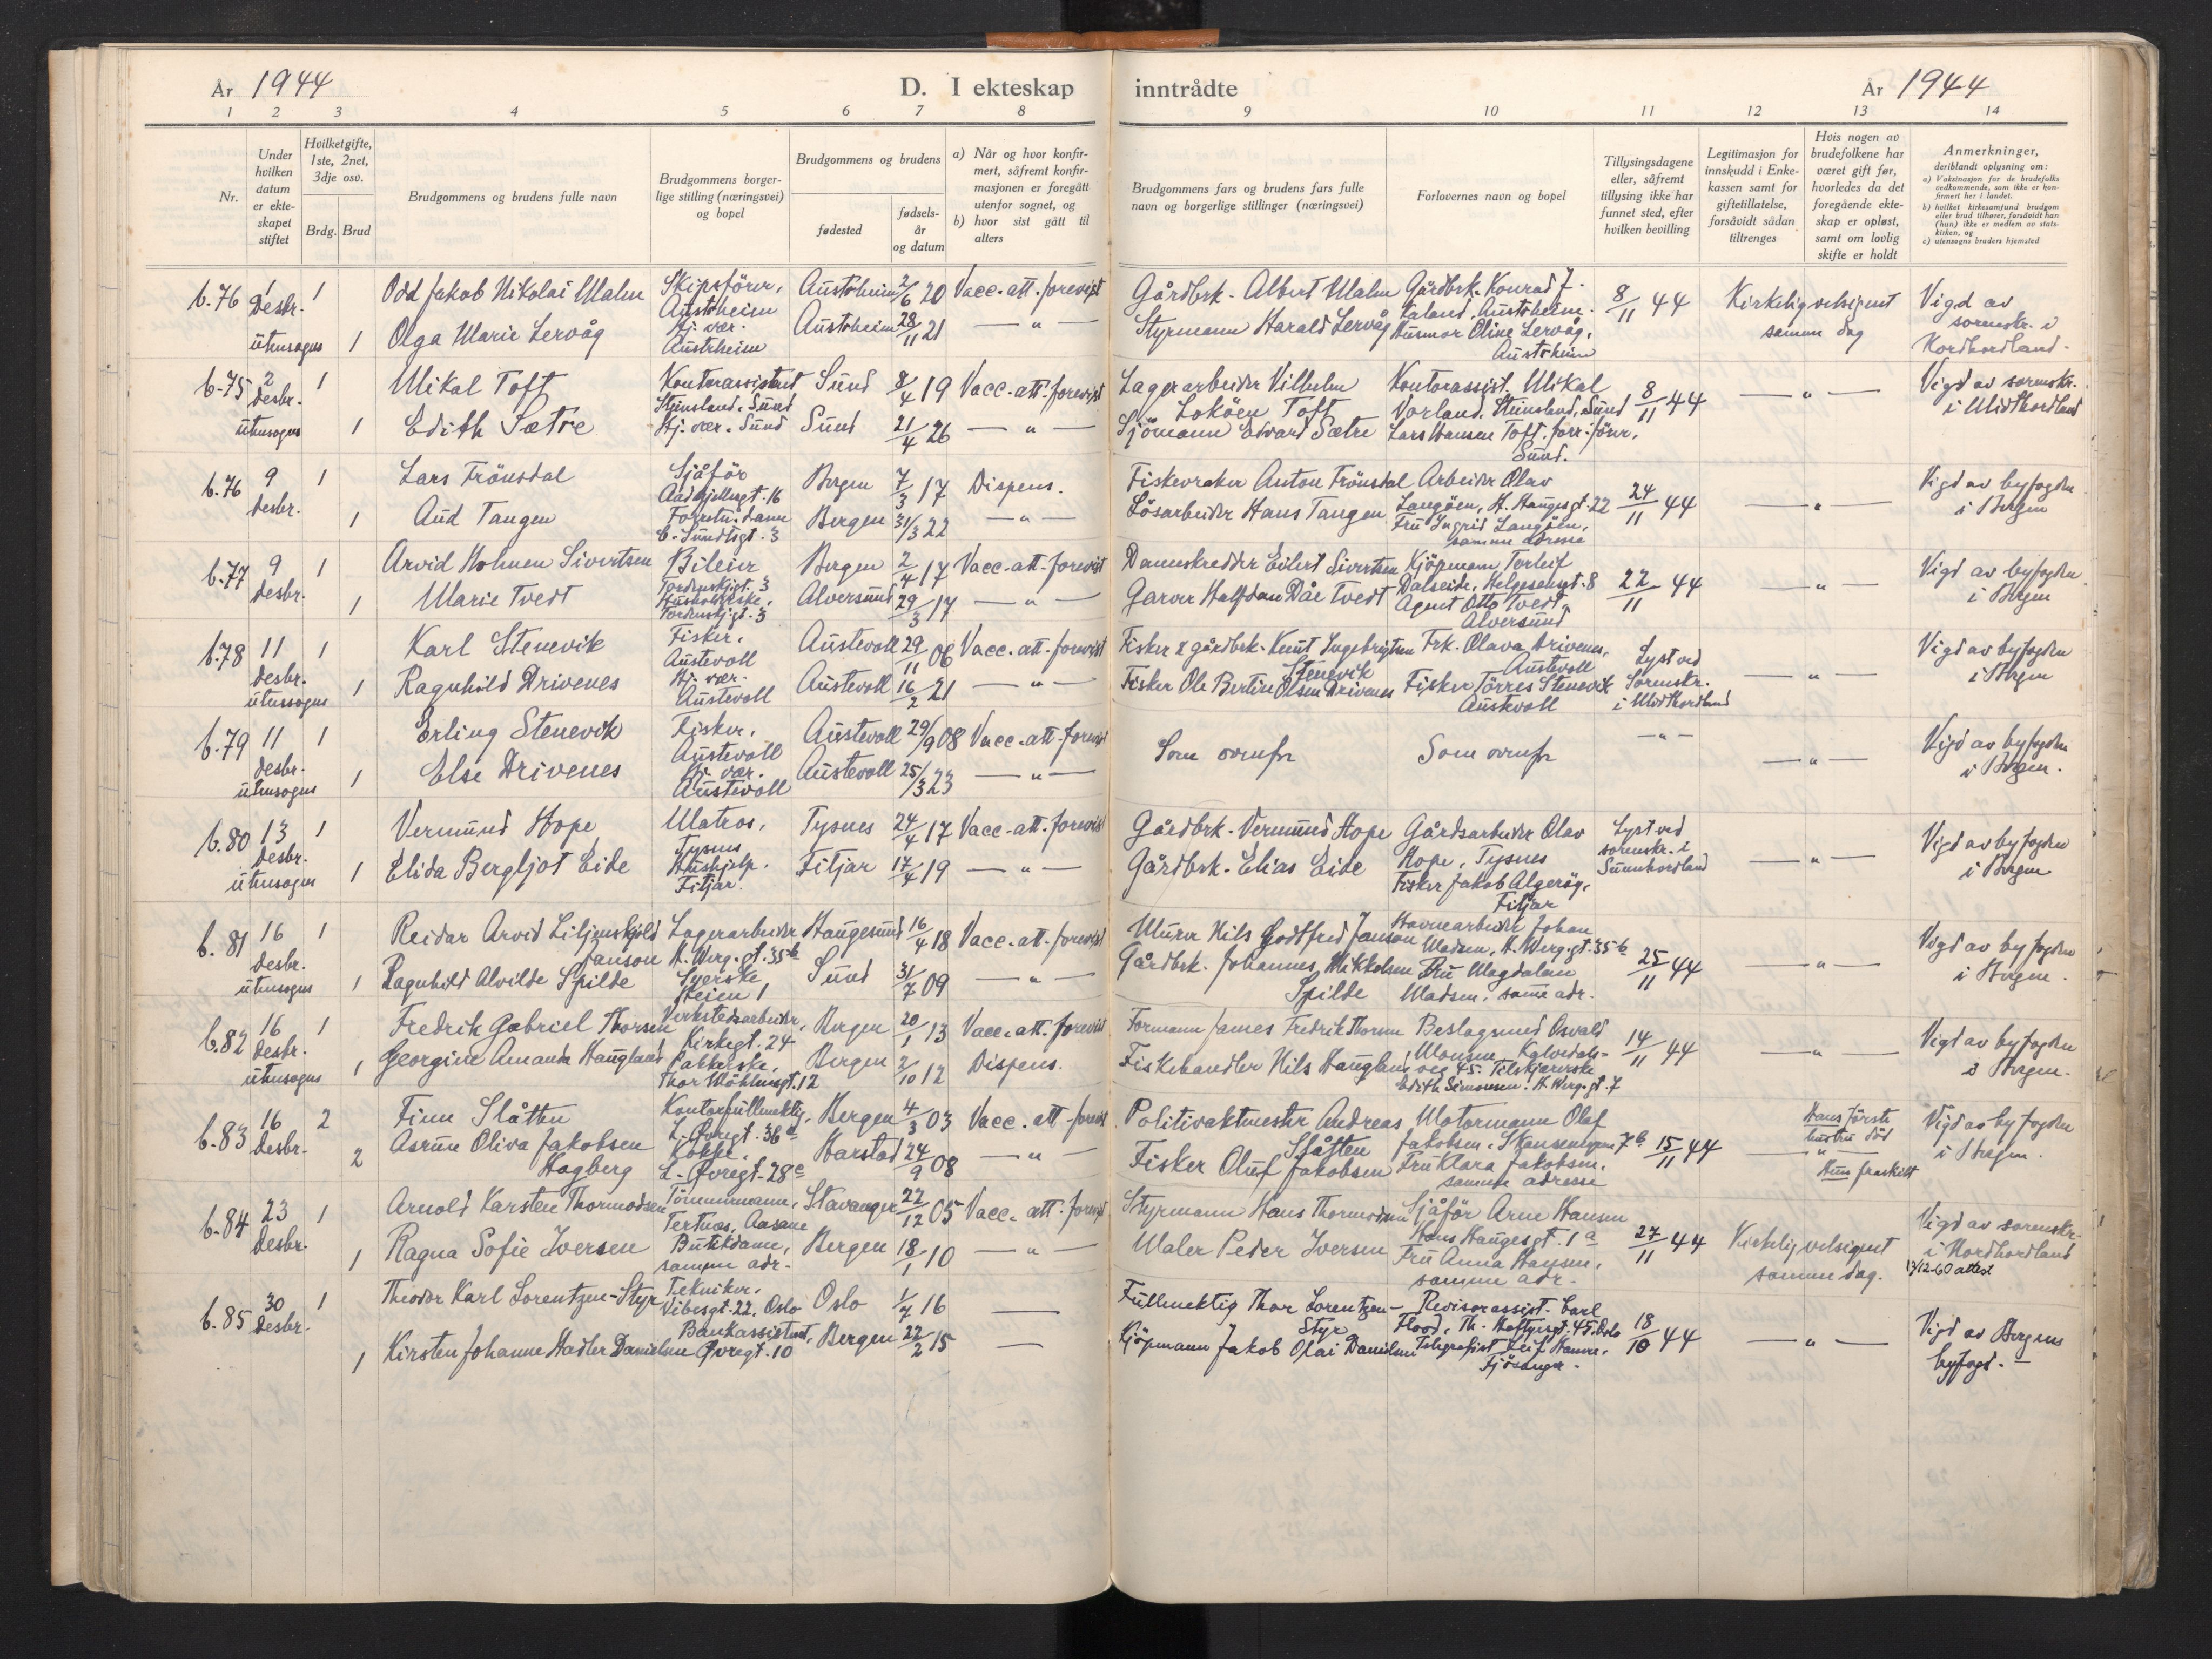 År 1944
D. I ekteskap inntrådte
År 1944
1 2 3 4 5 6 7 8 9 10 11 12 13 14
Nr.
Under hvilken datum er ekteskapet stiftet
Hvilket gifte, 1ste, 2net, 3dje osv.
Brdg. Brud
Brudgommens og brudens fulle navn
Brudgommens borgerlige stilling (næringsvei) og bopel
Brudgommens og brudens
fødested
fødselsår og datum
a) Når og hvor konfirmert, såfremt konfirmasjonen er foregått utenfor sognet, og
b) hvor sist gått til alters
Brudgommens fars og brudens fars fulle navn og borgerlige stillinger (næringsvei)
Forlovernes navn og bopel
Tillysingsdagene eller, såfremt tillysing ikke har funnet sted, efter hvilken bevilling
Legitimasjon for innskudd i Enkekassen samt for giftetillatelse, forsåvidt sådan tiltrenges
Hvis nogen av brudefolkene har været gift før, hvorledes da det foregående ekteskap er opløst, samt om lovlig skifte er holdt
Anmerkninger,
deriblandt oplysning om:
a) Vaksinasjon for de brudefolks vedkommende, som ikke er konfirmert her i landet.
b) hvilket kirkesamfund brudgom eller brud tilhører, forsåvidt han (hun) ikke er medlem av statskirken, og
c) utensogns bruders hjemsted
b.76 1 Desbr. utensogns 1
Odd Jakob Nikolai Malm
Skipsförer, Austrheim
Austrheim 2/6 20 Vacc. att. forevist
Gårdbrk. Albert Malm
Gårdbrk. Konrad J. Taland, Austrheim.
8/11 44
Kirkelig velsignet samme dag
Vigd av sorenskr. i Nordhordland.
1 Olga Marie Lervåg
Hj. vær. Austrheim
Austrheim 28/11 21 — " —
Styrmann Harald Lervåg
Husmor Oline Lervåg, Austrheim
b.75 2 desbr. utensogns 1
Mikal Toft
Kontorassistent Steinsland, Sund
Sund 8/4 19 Vacc. att. forevist
Lagerarbeider Vilhelm Loköen Toft
Kontorassist. Mikal Vorland, Steinsland, Sund
8/11 44
— " —
Vigd av sorenskr. i Midthordland
1 Edith Sætre
Hj. vær. Sund
Sund 21/4 26 — " —
Sjömann Edvard Sætre
Lars Hansen Toft, forr. förer, Sund.
b.76 9 desbr. 1
Lars Trönsdal
Sjåför
Bergen 7/3 17 Dispens.
Fiskevraker Anton Trönsdal
Arbeider Olav Langöen, H. Haugesgt. 22
24/11 44
— " —
Vigd av byfogden i Bergen
1 Aud Tangen
C. Sundtsgt. 3
Bergen 31/3 22 — " —
Lösarbeider Hans Tangen
Fru Ingrid Langöen, samme adresse
b.77 9 desbr. 1
Arvid Holmen Sivertsen
Bileier Tordenskjgt. 3
Bergen 2/4 17 Vacc. att. forevist
Dameskredder Eilert Sivertsen
Kjöpmann Torleif Dalseide, Helgesensgt. 8
22/11 44
— " —
Vigd av byfogden i Bergen
1 Marie Tvedt
Tordenskj.gt. 3
Alversund 29/3 17 — " —
Garver Halfdan Dåe Tvedt
Agent Otto Tvedt, Alversund
b.78 11 desbr. utensogns 1
Karl Stenevik
Fisker, Austevoll
Austevoll 29/11 06 Vacc. att. forevist
Fisker & gårdbrk. Knut Ingebrigtsen Stenevik
Frk. Olava Drivenes, Austevoll
Lyst ved Sorenskr. i Midthordland
— " —
Vigd av byfogden i Bergen
1 Ragnhild Drivenes
Hj. vær. Austevoll
Austevoll 16/2 21 — " —
Fisker Ole Bertin Olsen Drivenes
Fisker Törres Stenevik Austevoll
b.79 11 desbr. utensogns 1
Erling Stenevik
Fisker, Austevoll
Austevoll 29/9 08 Vacc. att. forevist
Som ovenfor
Som ovenfor
— " —
— " —
Vigd av byfogden i Bergen.
1 Else Drivenes
Hj. vær. Austevoll
Austevoll 25/3 23 — " —
b.80 13 desbr. utensogns 1
Vermund Hope
Matros, Tysnes
Tysnes 24/4 17 Vacc. att. forevist
Gårdbrk. Vermund Hope
Gårdsarbeider Olav Hope, Tysnes
Lyst ved sorenskr. i Sunnhordland
— " —
Vigd av byfogden i Bergen
1 Elida Bergljot Eide
Hushjelp. Fitjar.
Fitjar 17/4 19 — " —
Gårdbrk. Elias Eide
Fisker Jakob Algeröy, Fitjar
b.81 16 desbr. utensogns 1
Reidar Arvid Liljenskjold Janson
Lagerarbeider H. Werg. gt. 35b
Haugesund 16/4 18 Vacc. att. forevist
Murer Nils Godtfred Janson
Havnearbeider Johan Madsen, H. Werg. gt. 35b
25/11 44
— " —
Vigd av byfogden i Bergen.
1 Ragnhild Alvilde Spilde
Syerske Heien 1
Sund 31/7 09 — " —
Gårdbrk. Johannes Mikkelsen Spilde
Fru Magdalene Madsen, same adr.
b.82 16 desbr. utensogns 1
Fredrik Gabriel Thorsen
Verkstedsarbeider, Kirkegt. 24
Bergen 20/1 13 Vacc. att. forevist
Formann James Fredrik Thorsen
Beslagsmed Osvald Monsen, Kalvedalsveg 45.
14/11 44
— " —
Vigd av byfogden i Bergen.
1 Georgine Amanda Haugland
Pakkerske, Thor Möhlensgt. 12
Bergen 2/10 12 Dispens.
Fiskehandler Nils Haugland
Tilskjærerske Edith Simonsen. H. Werg. gt. 7
b.83 16 desbr. 2
Finn Slåtten
Kontorfullmektig, L. Øvregt. 36a
Bergen 4/3 03 Vacc. att. forevist
Politivaktmester Andreas Slåtten
Motormann Olaf Jakobsen, Skansemyren 7b
15/11 44
Hans förste hustru död
Vigd av byfogden i Bergen.
2 Asrun Oliva Jakobsen Hagberg
Kokke, L. Øvregt. 28c
Harstad 24/9 08 — " —
Fisker Oluf Jakobsen
Fru Klara Jakobsen, samme adresse
— " —
Hun fraskilt
b.84 23 desbr. 1
Arnold Karsten Thormodsen
Tömmermann, Tertnes, Aasane
Stavanger 22/12 05 Vacc. att. forevist
Styrmann Hans Thormodsen
Sjåför Arne Hansen Hans Haugesgt. 1a
27/11 44
Kirkelig velsignet samme dag.
Vigd av sorenskr. i Nordhordland
13/12-60 attest
1 Ragna Sofie Iversen
Butikdame, samme adr.
Bergen 18/1 10 — " —
Maler Peder Iversen
Fru Anna Hansen, samme adr.
b.85 30 desbr. 1
Theodor Karl Lorentzen-Styr
Tekniker, Vibesgt. 22, Oslo
Oslo 1/7 16 —
Fullmektig Thor Lorentzen-Styr
Revisorassist. Carl Flood, Th. Heftyesgt. 45, Oslo
18/10 44
— " —
Vigd av Bergens byfogd. —
1 Kirsten Johanne Hadler Danielsen
Bankassistent, Øvregt. 10
Bergen 22/2 15 —
Kjöpmann Jakob Olai Danielsen
Telegrafist Leif Hamre, Fjösanger.